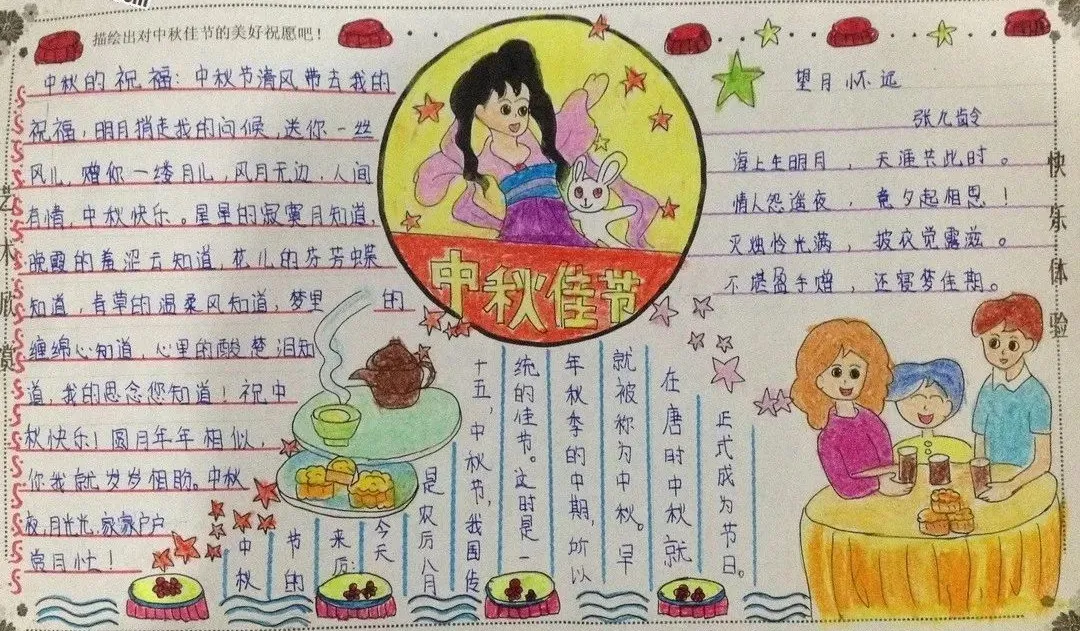 描绘出对中秋佳节的美好祝愿吧！
中秋的祝福：中秋节清风带去我的
祝福，明月捎走我的问候，送你一丝
风儿，赠你一缕月儿，风月无边，人间
有情，中秋快乐。星星的寂寞月知道，
晚霞的羞涩云知道，花儿的芬芳蝶
知道，青草的温柔风知道，梦里的
缠绵心知道，心里的酸楚泪知
道，我的思念您知道！祝中
秋快乐！圆月年年相似，
你我就岁岁相盼。中秋
夜，月光光，家家户户
赏月忙！
艺术欣赏
中秋佳节
望月怀远
张九龄
海上生明月，天涯共此时。
情人怨遥夜，竟夕起相思！
灭烛怜光满，披衣觉露滋。
不堪盈手赠，还寝梦佳期。
快乐体验
中秋
节的
来历：
今天
是农历八月
十五，中秋节，我国传
统的佳节。这时是一
年秋季的中期，所以
就被称为中秋。早
在唐时中秋就
正式成为节日。